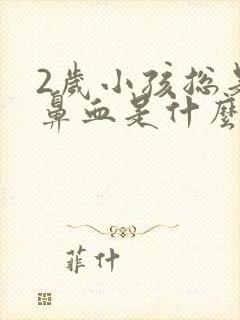 2岁小孩总是
鼻血是什麼
菲什